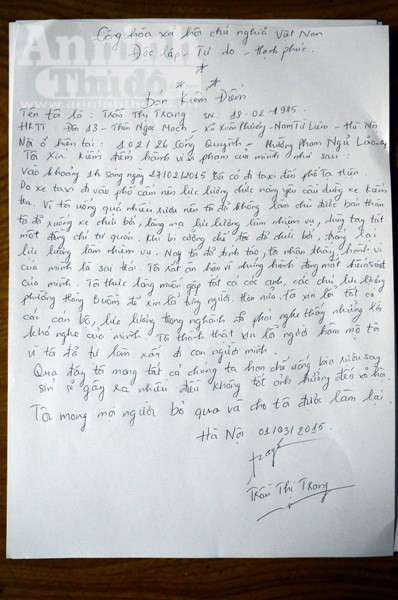 An ninh
Thủ đô
Cộng hòa xã hội chủ nghĩa Việt Nam
Độc lập - Tự do - Hạnh phúc.
Đơn Kiểm Điểm
Tên tôi là: Trần Thị Trang sn: 18-02-1985.
HKTT: Đội 13 - Thôn Ngọc Mạch - Xã Xuân Phương - Nam Từ Liêm - Hà Nội
Nơi ở hiện tại: 102/26 Cống Quỳnh - Phường Phạm Ngũ Lão
Tôi xin kiểm điểm hành vi vi phạm của mình như sau:
Vào khoảng 1h sáng ngày 27/02/2015 tôi có đi taxi đến phố Tạ Hiện
Do xe taxi đi vào phố cấm nên lực lượng chức năng yêu cầu dừng xe kiểm
tra. Vì tôi uống quá nhiều rượu nên tôi đã không làm chủ được bản thân
tôi đã xuống xe chửi bới, lăng mạ lực lượng làm nhiệm vụ, dùng tay tát
một đồng chí tự quản. Khi bị cưỡng chế tôi đã chửi bới, chống lại
lực lượng làm nhiệm vụ. Nay tôi đã tỉnh táo, tôi nhận thấy hành vi
của mình là sai trái. Tôi rất ân hận vì những hành động mất kiểm soát
của mình. Tôi thực lòng muốn gặp tất cả các anh, các chú lực lượng
phường Hàng Buồm để xin lỗi từng người. Hơn nữa tôi xin lỗi tất cả
các cán bộ, lực lượng trong ngành đã phải nghe thấy những lời
khó nghe của mình. Tôi thành thật xin lỗi người hâm mộ tôi
vì tôi đã tự làm xấu đi con người mình.
Qua đây tôi mong tất cả chúng ta hạn chế uống bia rượu say
sỉn sẽ gây ra nhiều điều không tốt ảnh hưởng đến xã hội.
Tôi mong mọi người bỏ qua và cho tôi được làm lại.
Hà Nội 01/03/2015.
Trần Thị Trang